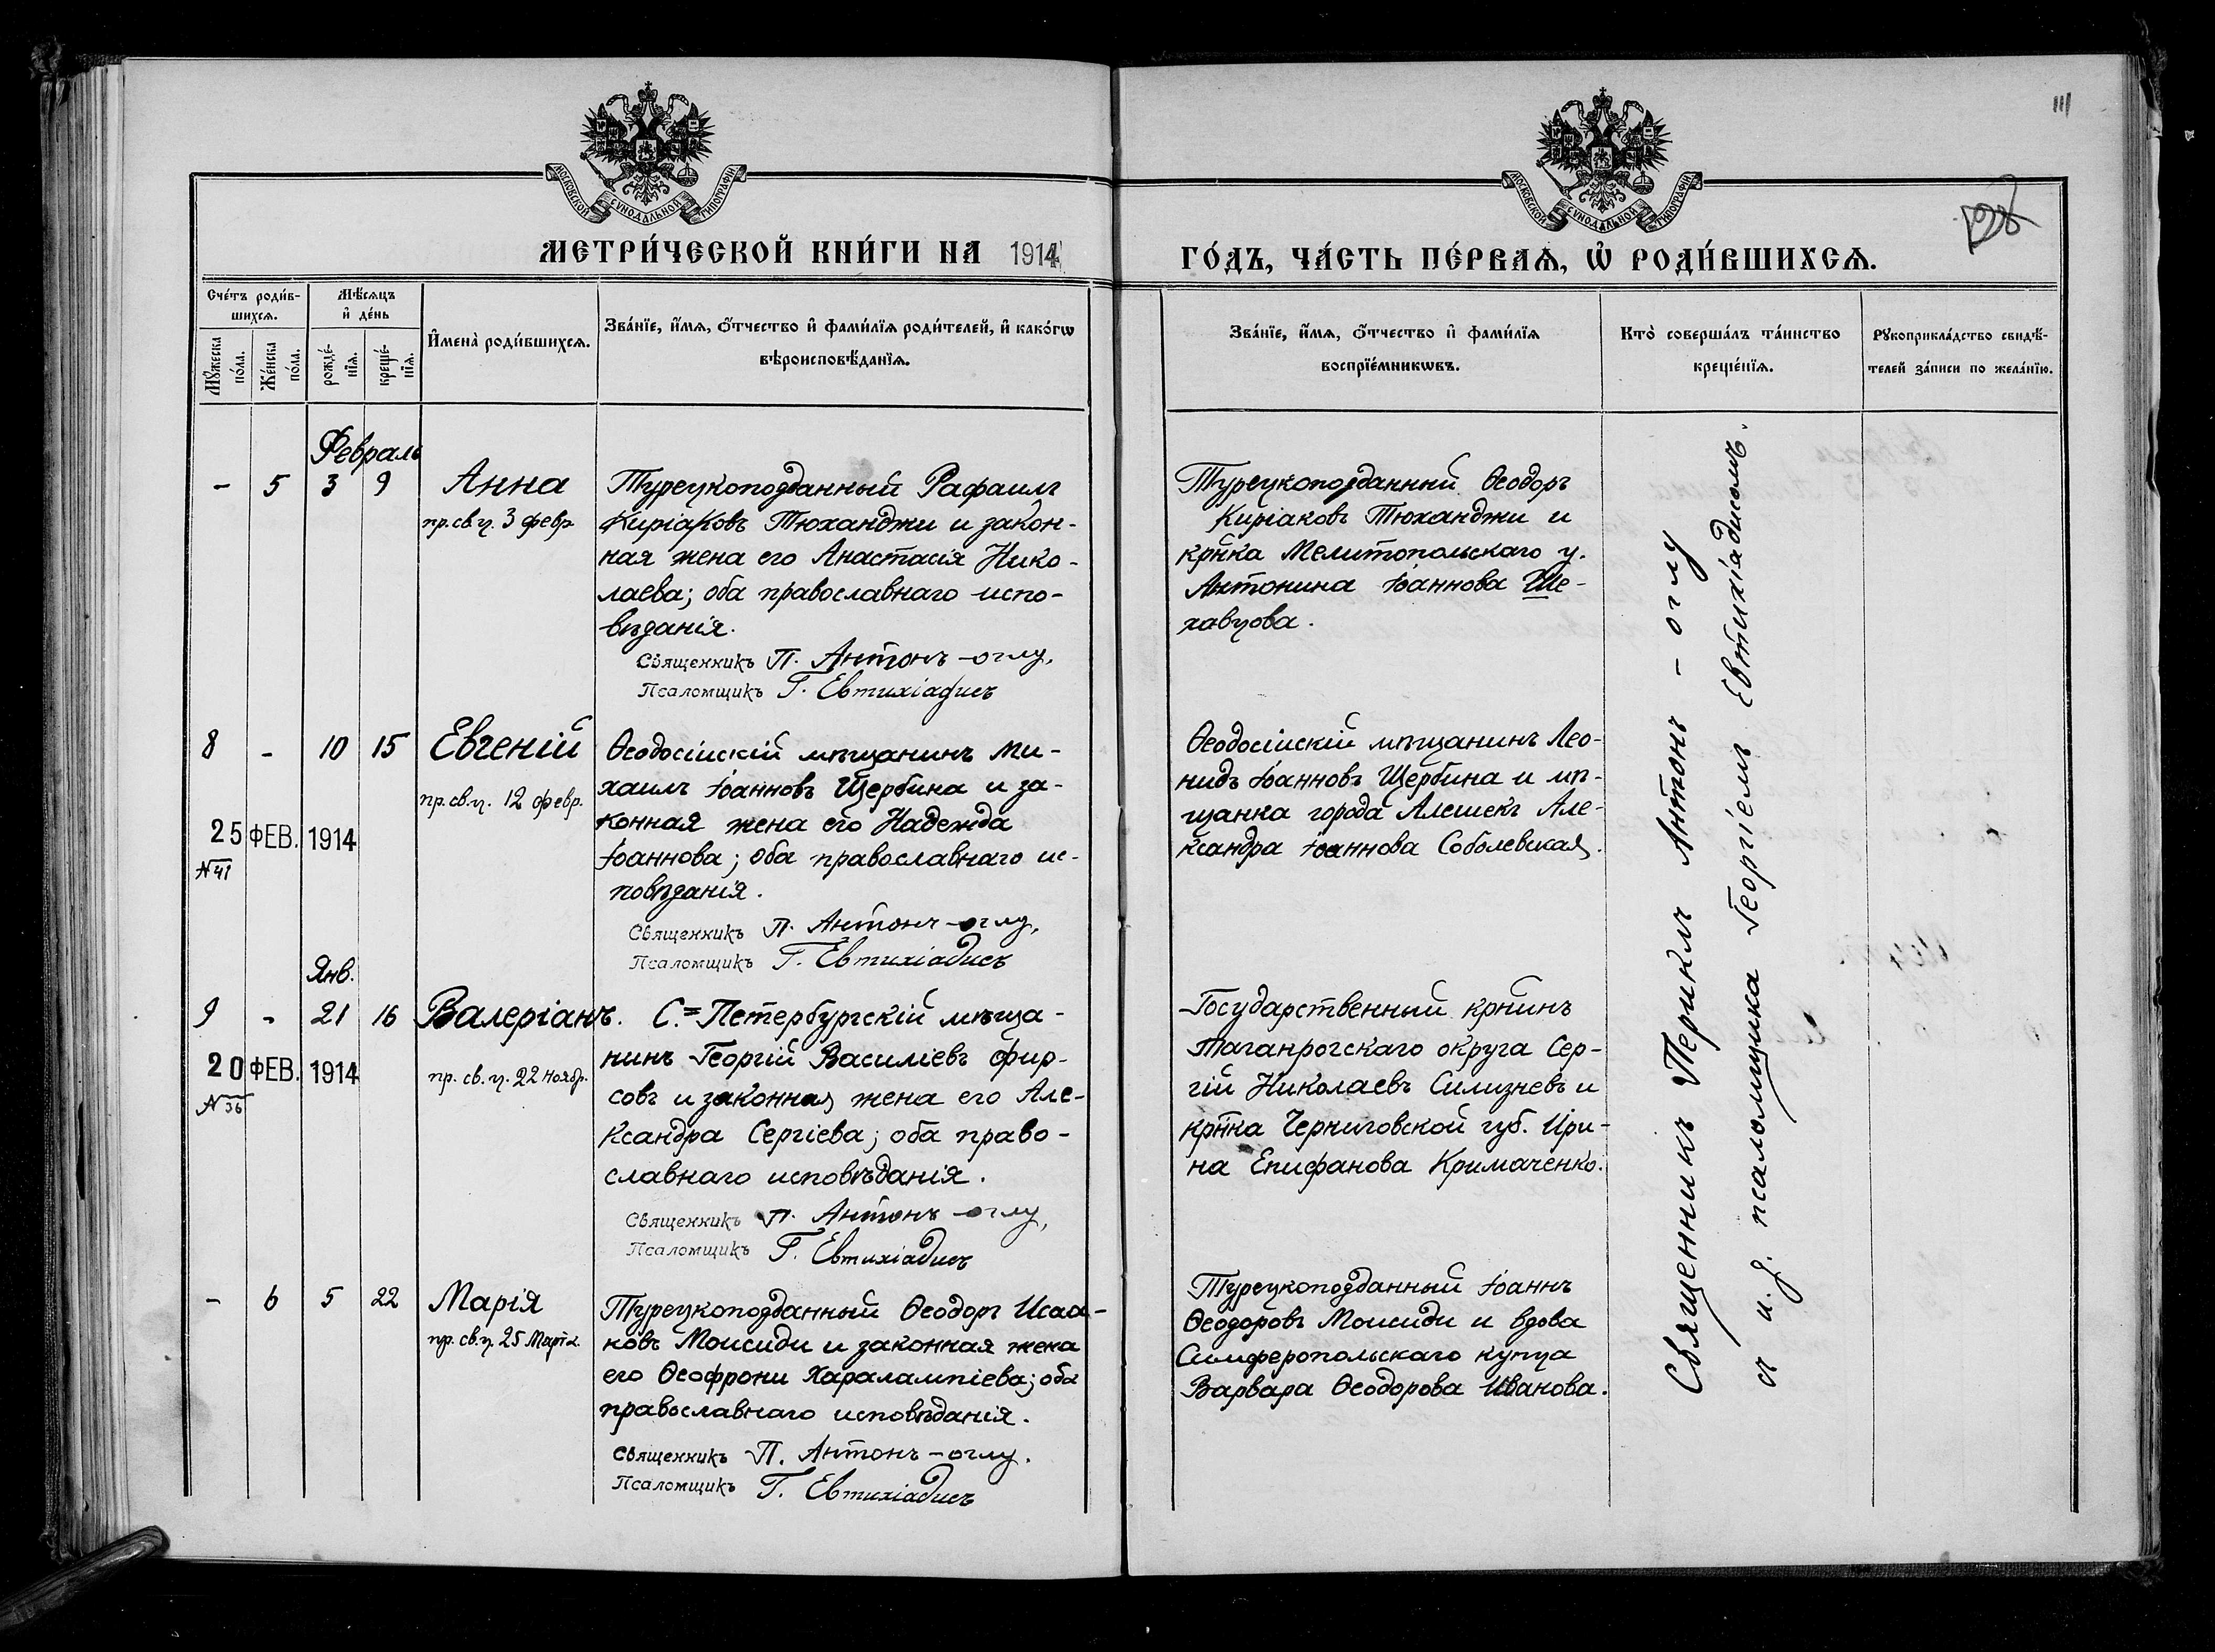 111
МОСКОВСКОЙ СУНОДАЛЬНОЙ ТИПОГРАФІИ
МОСКОВСКОЙ СУНОДАЛЬНОЙ ТИПОГРАФІИ
МЕТРИ́ЧЕСКОЙ КНИ́ГИ НА 1914
ГО́ДЪ, ЧА́СТЬ ПЕ́РВАѦ, Ѡ҆ РОДИ́ВШИХСѦ.
Сче́тъ роди́в-
шихсѧ.
Мꙋ́жеска по́ла.
Же́нска по́ла.
Мѣ́сѧцъ
и҆ де́нь
рожде́-
нїѧ.
креще́-
нїѧ.
И҆мена̀ роди́вшихсѧ.
Зва́нїе, и҆́мѧ, ѻ҆́тчество и҆ фами́лїѧ роди́телей, и҆ како́гѡ
вѣроисповѣ́данїѧ.
Зва́нїе, и҆́мѧ, ѻ҆́тчество и҆ фами́лїѧ
воспрїе́мникѡвъ.
Кто̀ соверша́лъ та́инство
креще́нїѧ.
Рꙋкоприкла́дство свидѣ́-
телей за́писи по жела́нїю.
Февраль
- 5 3 9 Анна
пр. св. ц. 3 февр.
Турецкоподданный Рафаилъ
Киріаковъ Тюханджи и закон-
ная жена его Анастасія Нико-
лаева; оба православнаго испо-
вѣданія.
Священникъ П. Антонъ-оглу,
Псаломщикъ Г. Евтихіадисъ
Турецкоподданный Ѳеодоръ
Киріаковъ Тюханджи и
кр̃нка Мелитопольскаго у.
Антонина Іоаннова Ше-
хавцова.
8 - 10 15 Евгеній
пр. св. ц. 12 февр.
25 ФЕВ. 1914
N 41
Ѳеодосійскій мѣщанинъ Ми-
хаилъ Іоанновъ Щербина и за-
конная жена его Надежда
Іоаннова; оба православнаго ис-
повѣданія.
Священникъ П. Антонъ-оглу,
Псаломщикъ Г. Евтихіадисъ
Ѳеодосійскій мѣщанинъ Лео-
нидъ Іоанновъ Щербина и мѣ-
щанка города Алешекъ Але-
ксандра Іоаннова Соболевская.
Янв.
9 - 21 16 Валеріанъ.
пр. св. ц. 22 ноябр.
20 ФЕВ. 1914
N 36
С.=Петербургскій мѣща-
нинъ Георгій Василіевъ Фир-
совъ и законная жена его Але-
ксандра Сергіева; оба право-
славнаго исповѣданія.
Священникъ П. Антонъ-оглу,
Псаломщикъ Г. Евтихіадисъ
Государственный кр̃нинъ
Таганрогскаго округа Сер-
гій Николаевъ Силизневъ и
кр̃нка Черниговской губ. Ири-
на Епифанова Кримаченко.
- 6 5 22 Марія
пр. св. ц. 25 Марта.
Турецкоподданный Ѳеодоръ Исаа-
ковъ Моисиди и законная жена
его Ѳеофрони Харалампіева; оба
православнаго исповѣданія.
Священникъ П. Антонъ-оглу.
Псаломщикъ Г. Евтихіадисъ
Турецкоподданный Іоаннъ
Ѳеодоровъ Моисиди и вдова
Симферопольскаго купца
Варвара Ѳеодорова Иванова.
Священникъ Периклъ Антонъ-оглу
съ и. д. псаломщика Георгіемъ Евтихіадисомъ.